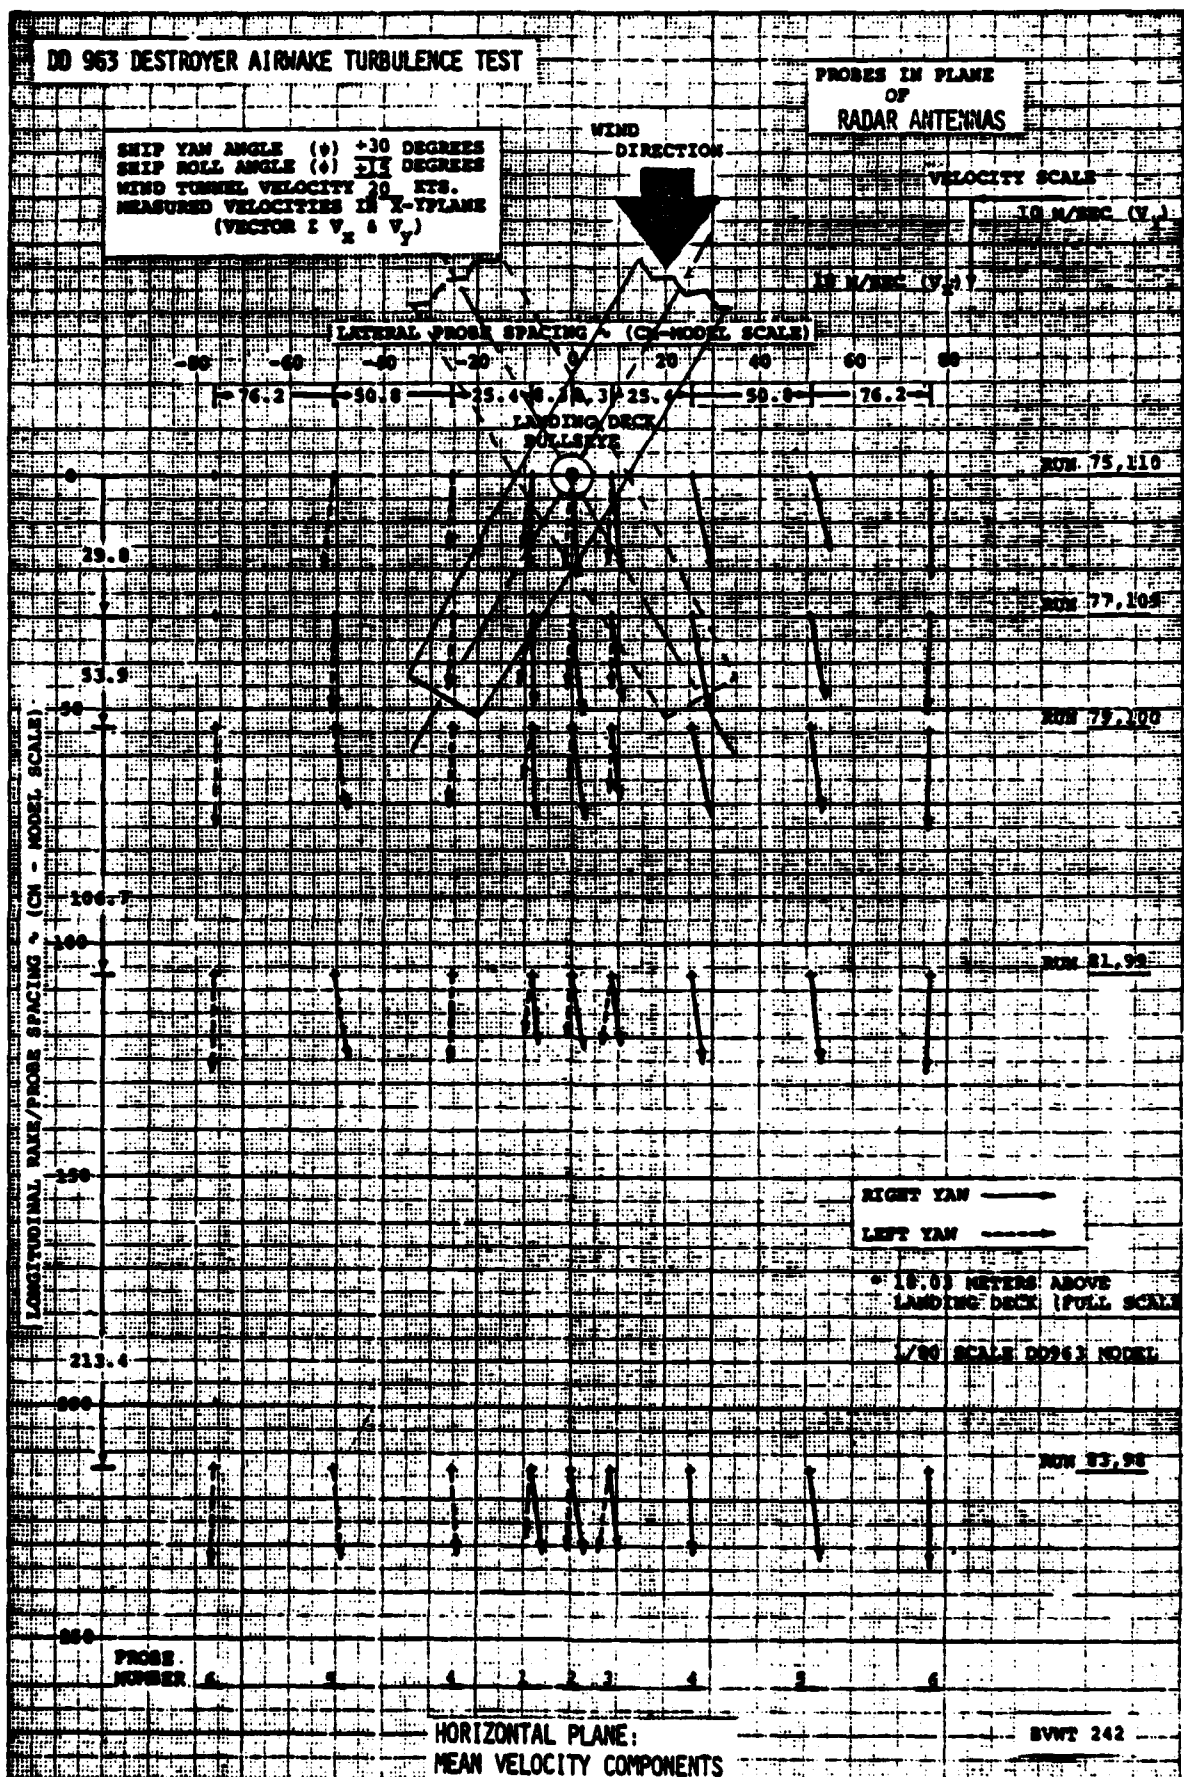 DD 963 DESTROYER AIRWAKE TURBULENCE TEST
PROBES IN PLANE
OF
RADAR ANTENNAS
SHIP YAW ANGLE (ψ) +30 DEGREES
SHIP ROLL ANGLE (ϕ) DEGREES
WIND TUNNEL VELOCITY 20 KTS.
MEASURED VELOCITIES IN X-YPLANE
(VECTOR Σ Vx & Vy)
WIND
DIRECTION
VELOCITY SCALE
10 M/SEC (Vy)
10 M/SEC (Vx)
LATERAL PROBE SPACING ~ (CM-MODEL SCALE)
-80 -60 -40 -20 0 20 40 60 80
76.2 50.8 25.4 8.3 8.3 25.4 50.8 76.2
LANDING DECK
BULLSEYE
0
RUN 75,110
29.8
RUN 77,109
53.9
50
RUN 79,100
106.7
100
RUN 81,99
150
RIGHT YAW
LEFT YAW
* 18.03 METERS ABOVE
LANDING DECK (FULL SCALE
1/80 SCALE DD963 MODEL
213.4
200
RUN 83,98
250
LONGITUDINAL RAKE/PROBE SPACING ~ (CM - MODEL SCALE)
PROBE
NUMBER 6 5 4 1 2 3 4 5 6
HORIZONTAL PLANE:
MEAN VELOCITY COMPONENTS
BVWT 242